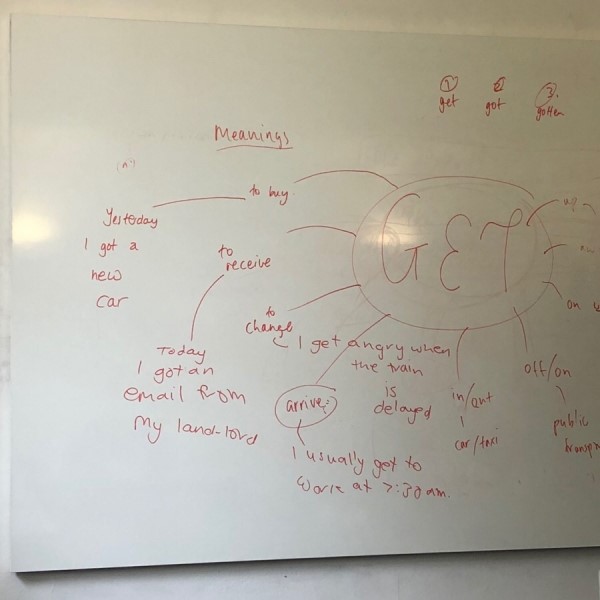 ① ② ③
get got gotten
Meanings
GET
to buy
Yesterday
I got a
new
car
to
receive
Today
I got an
email from
my land-lord
to
change
I get angry when
the train
is
delayed
arrive
I usually get to
work at 7:30am.
in/out
car/taxi
off/on
public
on